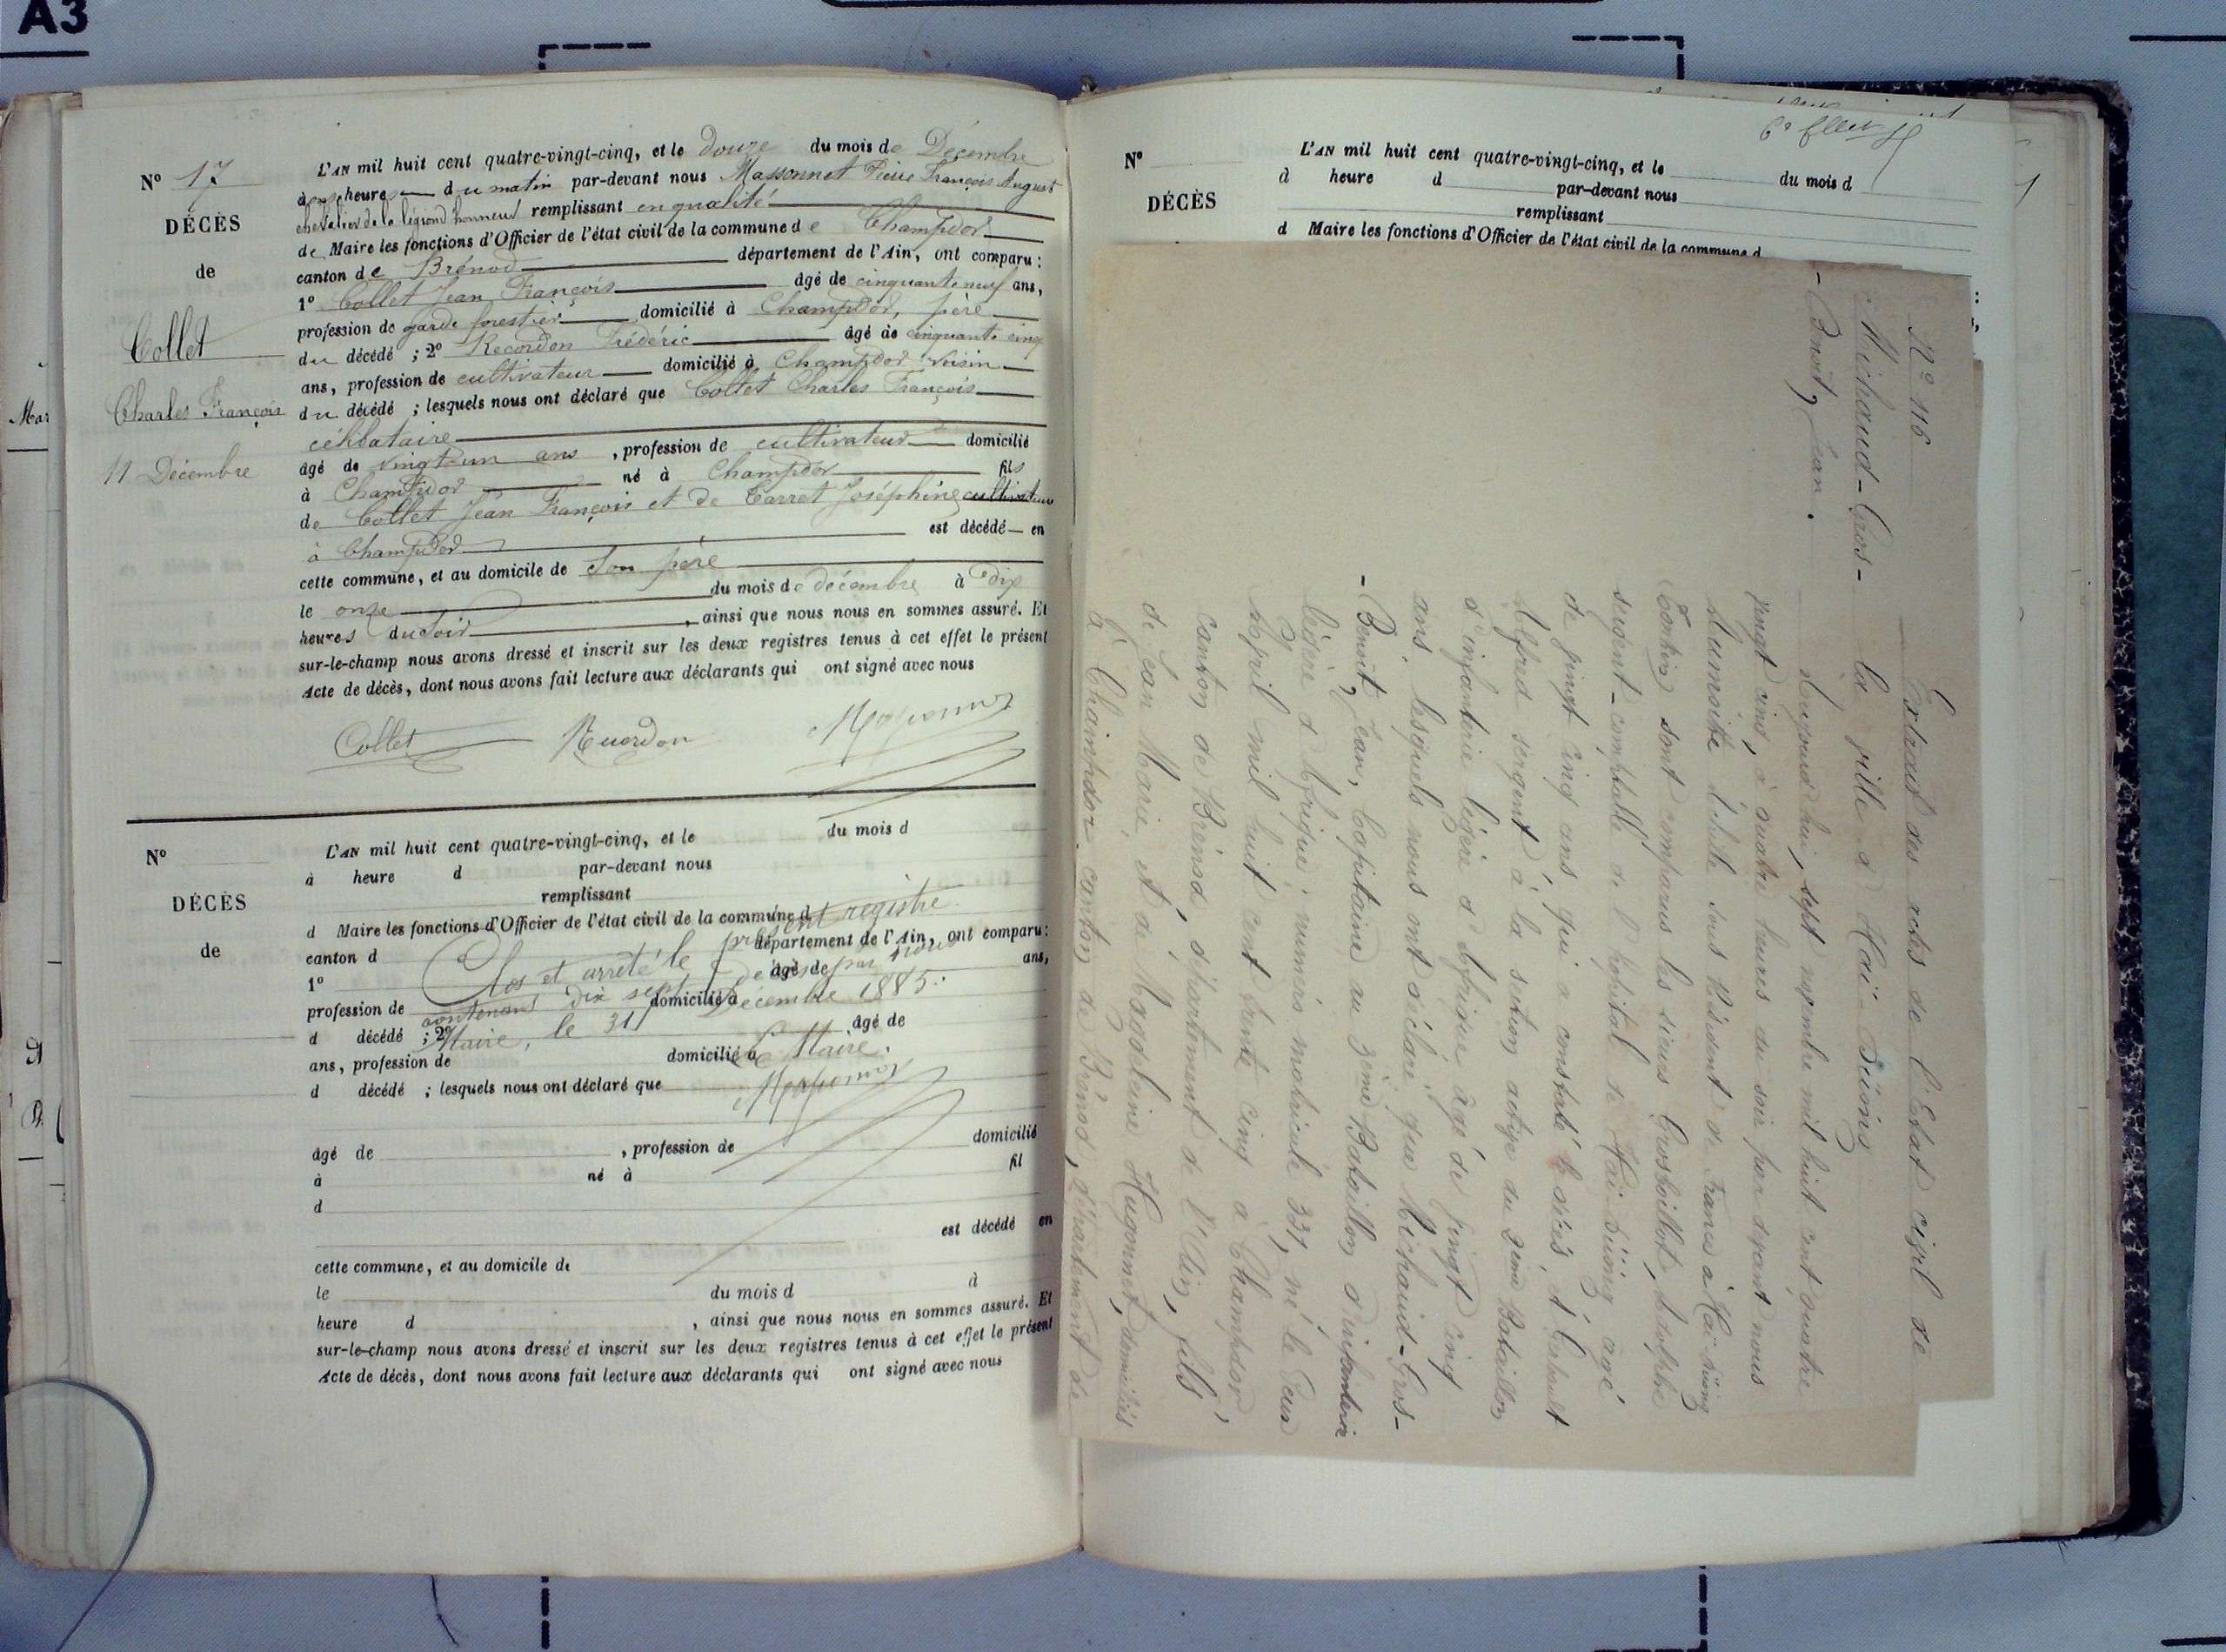 A3
Nº 17
DÉCÈS
de
Collet
Charles François
11 Décembre
L'AN mil huit cent quatre-vingt-cinq, et le douze du mois de Décembre
à onze heures du matin par-devant nous Massonnet Pierre François August
chevalier de la légion d'honneur remplissant en qualité
de Maire les fonctions d'Officier de l'état civil de la commune de Champdor
canton de Brénod département de l'Ain, ont comparu :
1º Collet Jean François âgé de cinquante neuf ans,
profession de garde forestier domicilié à Champdor, père
du décédé ; 2º Recordon Frédéric âgé de cinquante cinq
ans, profession de cultivateur domicilié à Champdor voisin
du décédé ; lesquels nous ont déclaré que Collet Charles François
célibataire
âgé de vingt un ans , profession de cultivateur domicilié
à Champdor né à Champdor fils
de Collet Jean François et de Carret Joséphine cultivateurs
à Champdor est décédé en
cette commune, et au domicile de son père
le onze du mois de décembre à dix
heures du soir , ainsi que nous nous en sommes assuré. Et
sur-le-champ nous avons dressé et inscrit sur les deux registres tenus à cet effet le présent
Acte de décès, dont nous avons fait lecture aux déclarants qui ont signé avec nous
Collet Recordon Massonnet
Nº
DÉCÈS
de
L'AN mil huit cent quatre-vingt-cinq, et le du mois d
à heure d par-devant nous
remplissant
d Maire les fonctions d'Officier de l'état civil de la commune d
canton d département de l'Ain, ont comparu :
1º âgé de ans,
profession de domicilié à
d décédé ; 2º âgé de
ans, profession de domicilié à
d décédé ; lesquels nous ont déclaré que
Clos et arrêté le présent registre
contenant dix sept décès par nous
Maire, le 31 Décembre 1885.
Le Maire.
Massonnet
âgé de , profession de domicilié
à né à fil
d
est décédé en
cette commune, et au domicile de
le du mois d à
heure d , ainsi que nous nous en sommes assuré. Et
sur-le-champ nous avons dressé et inscrit sur les deux registres tenus à cet effet le présent
Acte de décès, dont nous avons fait lecture aux déclarants qui ont signé avec nous
Nº
DÉCÈS
L'AN mil huit cent quatre-vingt-cinq, et le du mois d
à heure d par-devant nous
remplissant
d Maire les fonctions d'Officier de l'état civil de la commune d
Nº 116
Michaud-Gros-
- Benoît, Jean.
Extrait des actes de l'Etat civil de
la ville d'Haï-Düong
Aujourd'hui, sept novembre mil huit cent quatre
vingt cinq, à quatre heures du soir par devant nous
Aumoitte Achille sous Résident de France à Haï düong
(Tonkin) sont comparus les sieurs Grosboillot,
sergent-comptable de l'hôpital de Haï Düong agé
de vingt cinq ans, qui a constaté le décès, &
Alfred sergent à la section active du 3ème Bataillon
d'infanterie légère d'Afrique âgé de vingt cinq
ans, lesquels nous ont déclaré que Michaud-Gros-
- Benoît, Jean, Capitaine au 3ème Bataillon d'infanterie
légère d'Afrique, numéro matricule 331, né le deux
Avril mil huit cent trente cinq à Champdor
canton de Brénod, département de l'Ain, fils
de Jean Marie, et de Magdeleine Hugonnet, domiciliés
à Champdor canton de Brénod, département de